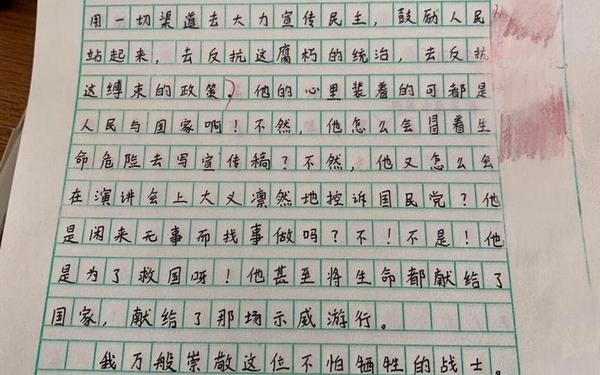 用一切渠道去大力宣传民主，鼓励人民
站起来，去反抗这腐朽的统治，去反抗
这缚束的政策。他的心里装着的可都是
人民与国家啊！不然，他怎么会冒着生
命危险去写宣传稿？不然，他又怎么会
在演讲会上大义凛然地控诉国民党？他
是闲来无事而找事做吗？不！不是！他
是为了救国呀！他甚至将生命都献给了
国家，献给了那场示威游行。
我万般崇敬这位不怕牺牲的战士。